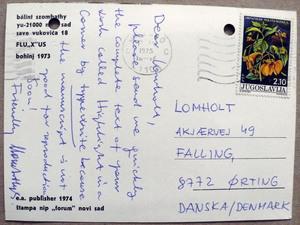 bálint szombathy
yu-21000 novi sad
save vukovića 18
FLU„X"US
bohinj 1973
Dear Lomholt,
please send me quickly
the complete text of your
work called Highlight in a
Corner by typewrite because
the manuscript is not
good for reproduction.
Soon!
Friendly
e.a. publisher 1974
štampa nip „forum" novi sad
1975
2.10
JUGOSLAVIJA
LOMHOLT
AKJÆRVEJ 49
FALLING
8772 ØRTING
DANSKA/DENMARK